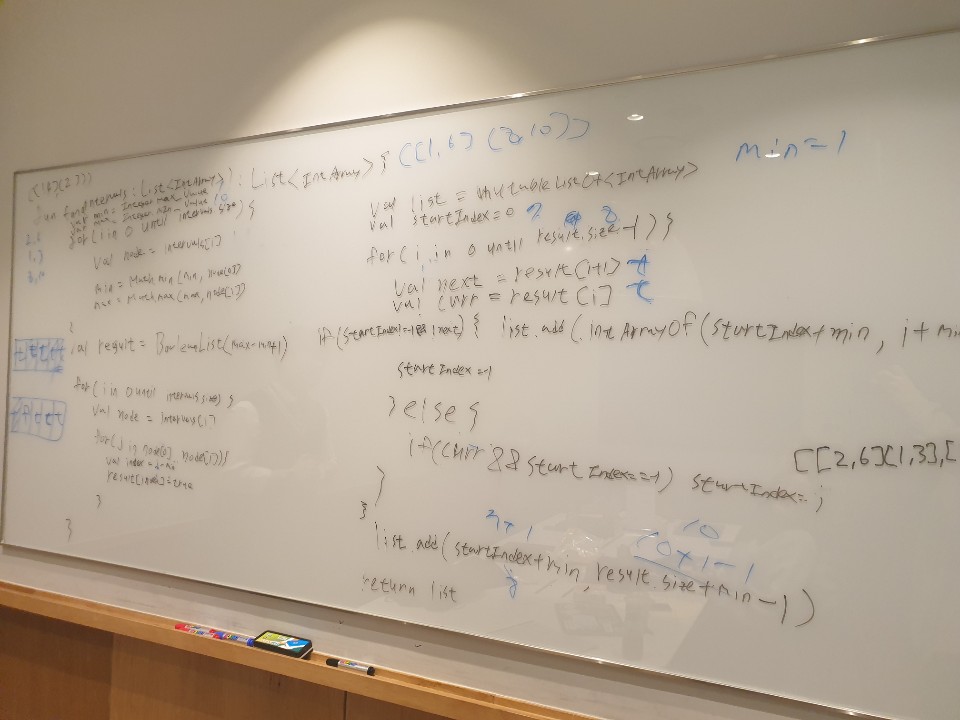 fun
intervals : List<IntArray>) : List<IntArray> {
[[1,6] (2,10)]
min=1
var min = Integer max_value
var max = Integer min_value
for(i in 0 until intervals size) {
val node = intervals[i]
min = Math min(min, node[0])
max = Math max(max, node[1])
}
val result = BooleanList(max-min+1)
for(i in 0 until intervals size) {
val node = intervals[i]
for(j in node[0] node[1]){
val index =
result[index]=true
}
}
val list = mutableListOf<IntArray>
val startIndex=0
for(i in 0 until result.size-1) {
val next = result[i+1] t
val curr = result[i] t
if(startIndex!=-1 && !next) { list.add(intArrayOf(startIndex+min, i+min
startIndex=-1
} else {
if(curr && startIndex==-1) startIndex=i
}
}
[[2,6][1,3],[
10
10+1-1
list.add(startIndex+min, result.size+min-1)
return list